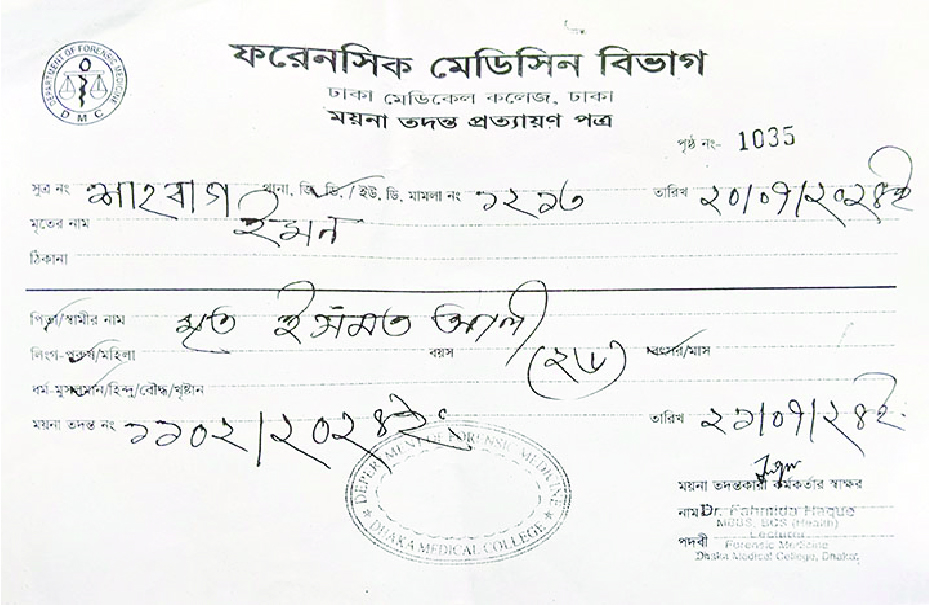 DEPARTMENT OF FORENSIC MEDICINE
DMC
ফরেনসিক মেডিসিন বিভাগ
ঢাকা মেডিকেল কলেজ, ঢাকা
ময়না তদন্ত প্রত্যায়ণ পত্র
পৃষ্ঠ নং- 1035
সুত্র নং শাহবাগ থানা, জি, ডি, / ইউ, ডি, মামলা নং ১২১৬ তারিখ ২০/০৭/২০২৪ইং
মৃতের নাম ইমন
ঠিকানা
পিতা/স্বামীর নাম মৃত ইসমত আলী
লিংগ-পুরুষ/মহিলা বয়স (২৮) বৎসর/মাস
ধর্ম-মুসলমান/হিন্দু/বৌদ্ধ/খৃষ্টান
ময়না তদন্ত নং ১১০২/২০২৪ইং তারিখ ২১/০৭/২৪ইং
DEPERTMENT OF FORENSIC MEDICINE
DHAKA MEDICAL COLLEGE
ময়না তদন্তকারী কর্মকর্তার স্বাক্ষর
নাম Dr. Fahmida Haque
MBBS, BCS (Health)
Lecturer
পদবী Forensic Medicine
Dhaka Medical College, Dhaka.